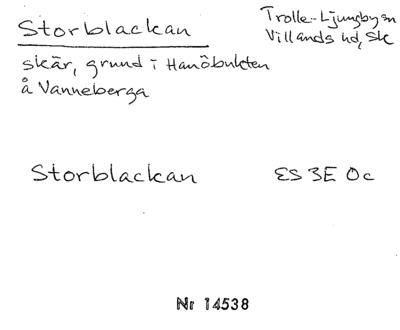 Storblackan
Trolle-Ljungby sn
Villands hd, Sk
skär, grund i Hanöbukten
å Vanneberga
Storblackan
ES 3E 0c
Nr 14538